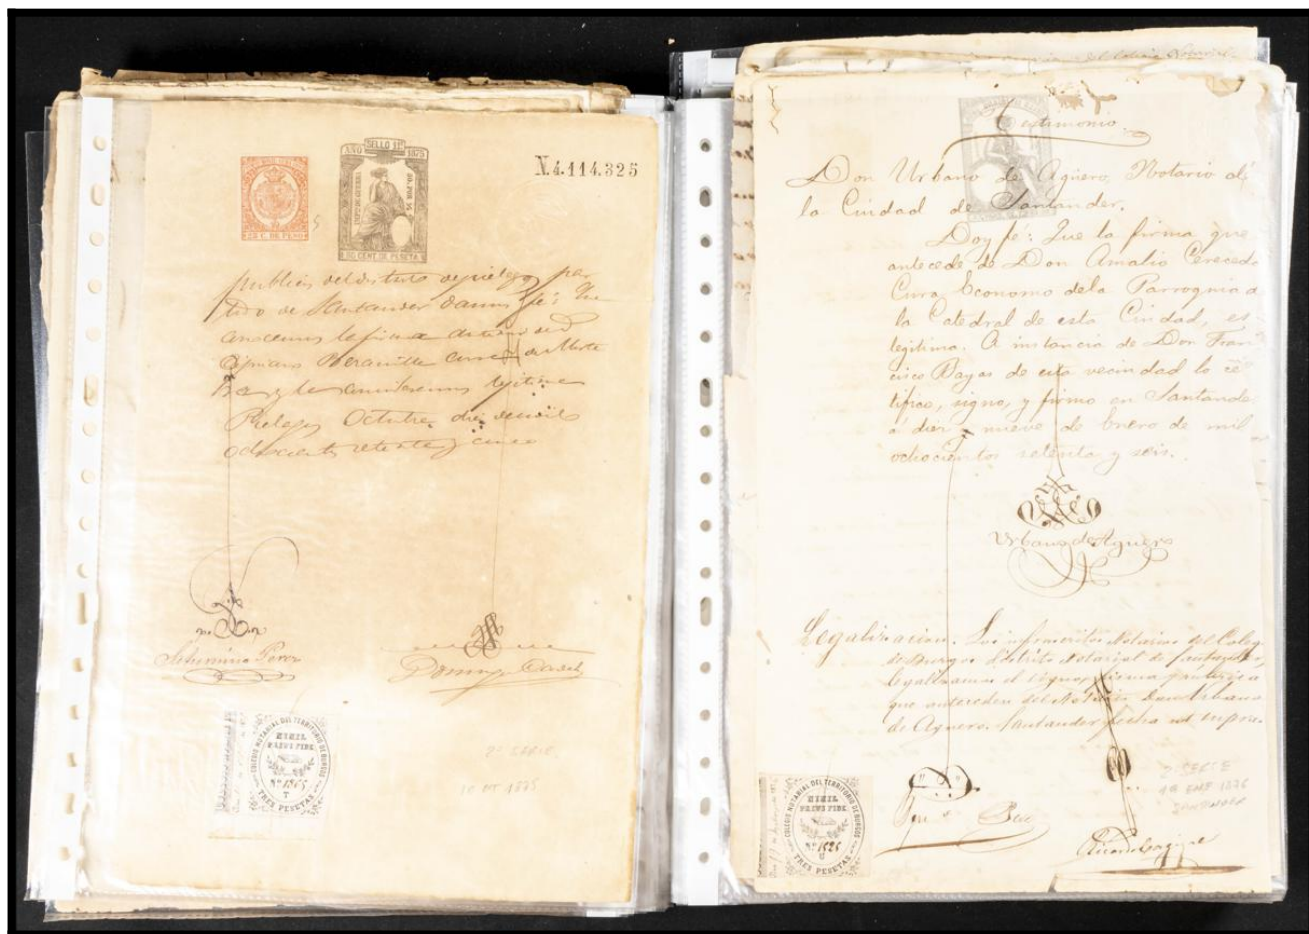 SELLO 11º
AÑO 1875
IMPTO DE GUERRA
50 CENT DE PESETA
25 C. DE PESO
N.4.114.325
publicos del distrito de pielagos par
tido de Santander damos fé: Que
conocemos la firma
Cipriano cura de
ba y la consideramos legitima
Pielagos Octubre diez de mil
ochocientos setenta y cinco
Saturnino Perez
Domingo
COLEGIO NOTARIAL DEL TERRITORIO DE BURGOS
NIHIL
PRIUS FIDE
Nº 1865
T
TRES PESETAS
2ª SERIE
10 OT 1875
del Colegio Notarial
Testimonio
Don Urbano de Agüero, Notario de
la Ciudad de Santander.
Doy fé: Que la firma que
antecede de Don Amalio Cereceda
Cura Economo dela Parroquia de
la Catedral de esta Ciudad, es
legitima. A instancia de Don Fran
cisco Bayas de esta vecindad lo cer
tifico, signo, y firmo en Santander
a diez y nueve de Enero de mil
ochocientos setenta y seis.
Urbano de Agüero
Legalizacion. Los infrascritos Notarios del Colegio
de Burgos distrito Notarial de Santander,
legalizamos el signo, firma y rúbrica
que anteceden del Notario Don Urbano
de Agüero. Santander fecha ut supra.
COLEGIO NOTARIAL DEL TERRITORIO DE BURGOS
NIHIL
PRIUS FIDE
Nº 1526
U
TRES PESETAS
2ª SERIE
19 ENE 1876
SANTANDER